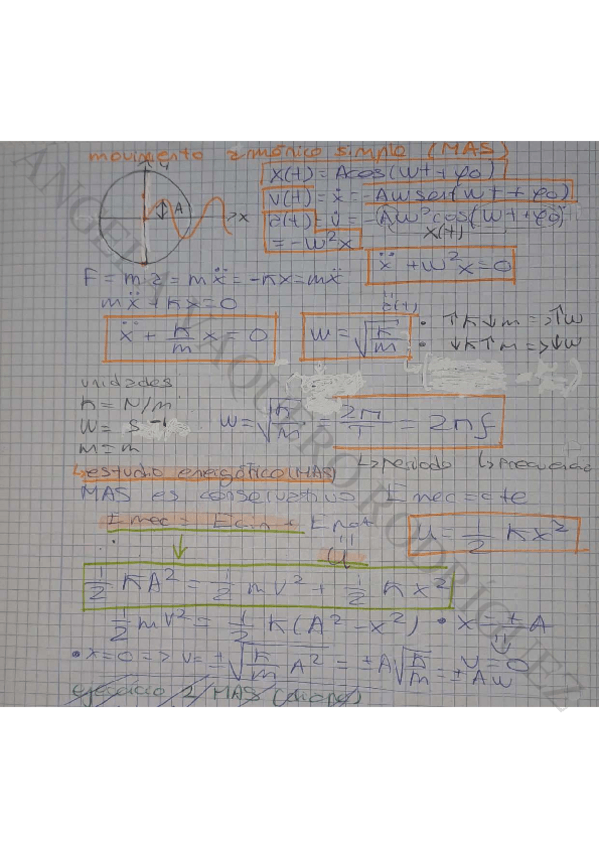 movimiento armónico simple (MAS)
x(t) = A cos(wt + φ0)
v(t) = ẋ = Aw sen(wt + φ0)
a(t) = v̇ = -Aw² cos(wt + φ0)
x(t)
= -w²x
A
x
F = m a = mẍ = -Kx = mẍ
ẍ + w²x = 0
mẍ + Kx = 0
a(t)
ẍ + K/m x = 0
w = √K/m
• ↑K ↓m => ↑w
• ↓K ↑m => ↓w
unidades
K = N/m
w = s⁻¹
m = m
w = √K/m = 2π/T = 2πf
↳ periodo ↳ frecuencia
↳ estudio energético (MAS)
MAS es conservativo Emec = cte
Emec = Ecin + Epot
U
U = 1/2 Kx²
1/2 KA² = 1/2 mv² + 1/2 Kx²
1/2 mv² = 1/2 K(A² - x²) • x = ±A
v = 0
• x = 0 => v = ±√K/m A² = ±A√K/m = ±Aw
ejercicio 2 MAS
ANGELA VAQUERO RODRÍGUEZ